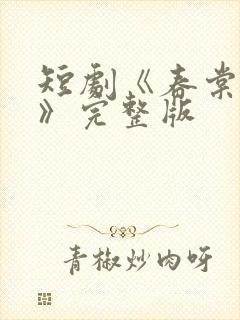 短劇《春棠
》完整版
青椒炒肉呀